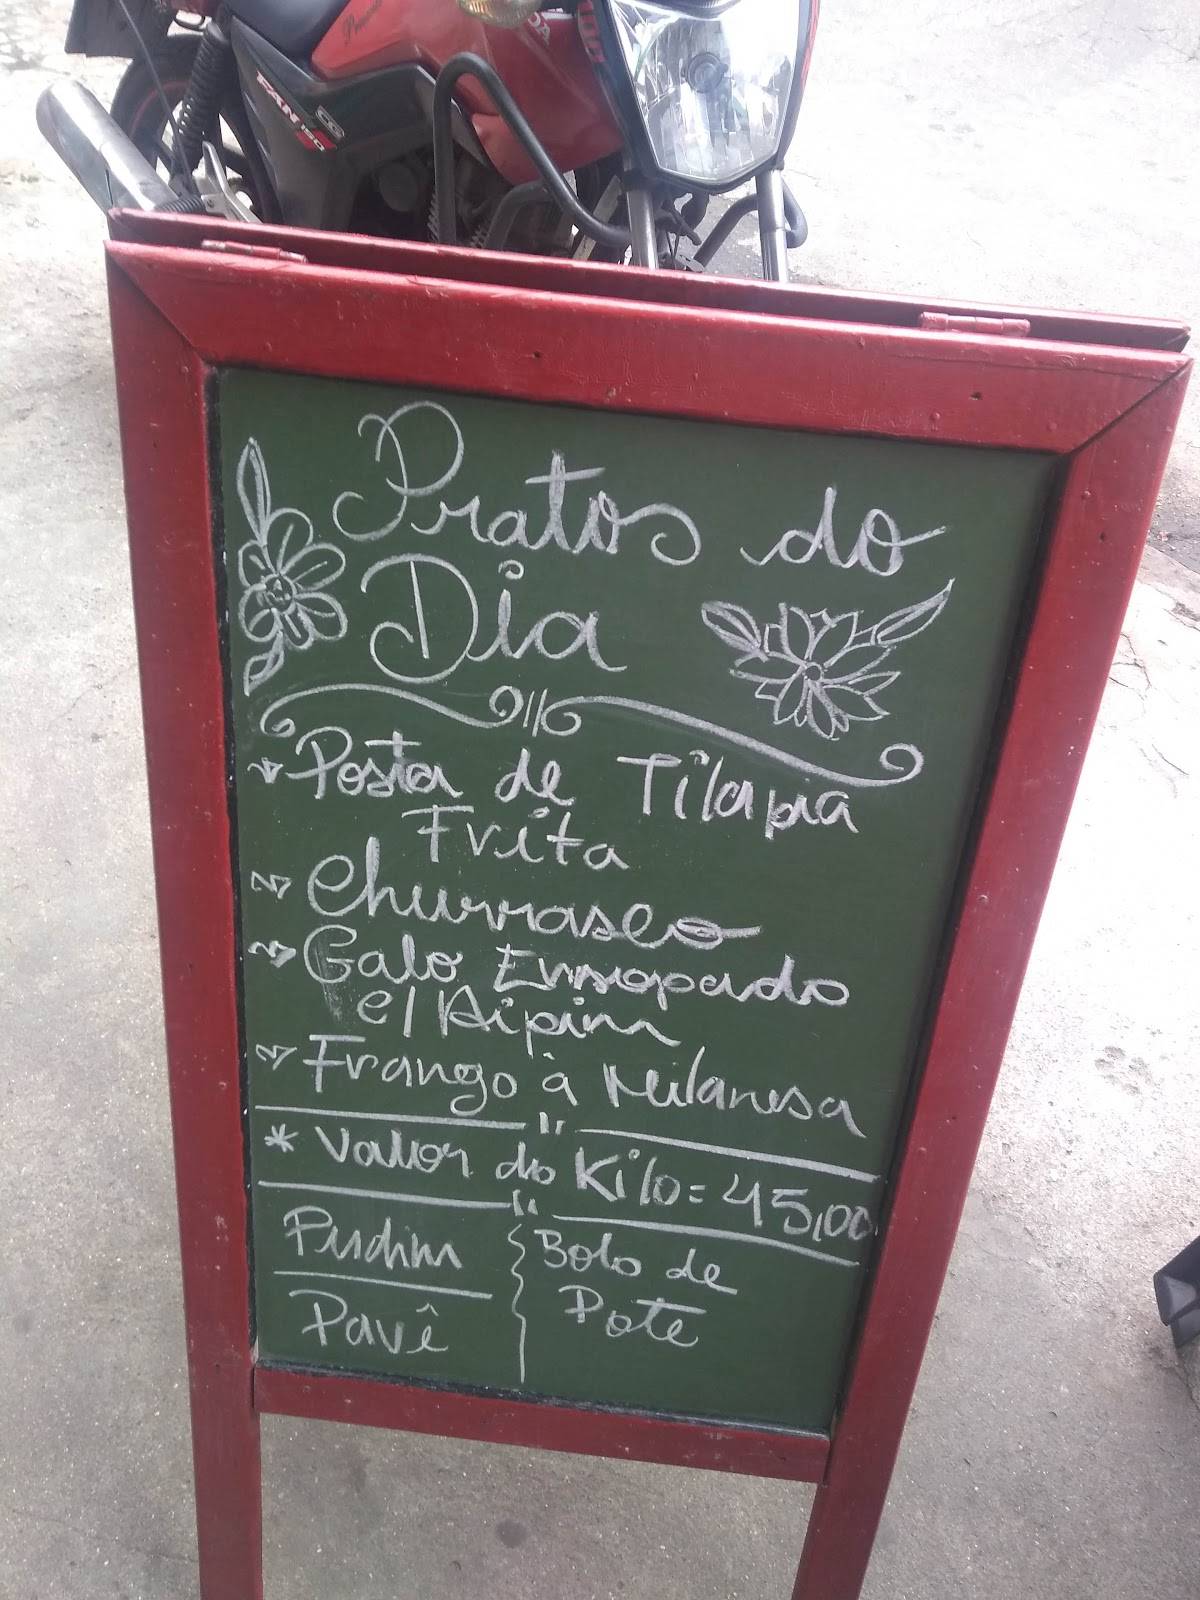 FAN 150
CG
Pratos do
Dia
Posta de Tilapia
Frita
Churrasco
Galo Ensopado
c/ Aipim
Frango à Milanesa
* Valor do Kilo = 45,00
Pudim
Pavê
Bolo de
Pote